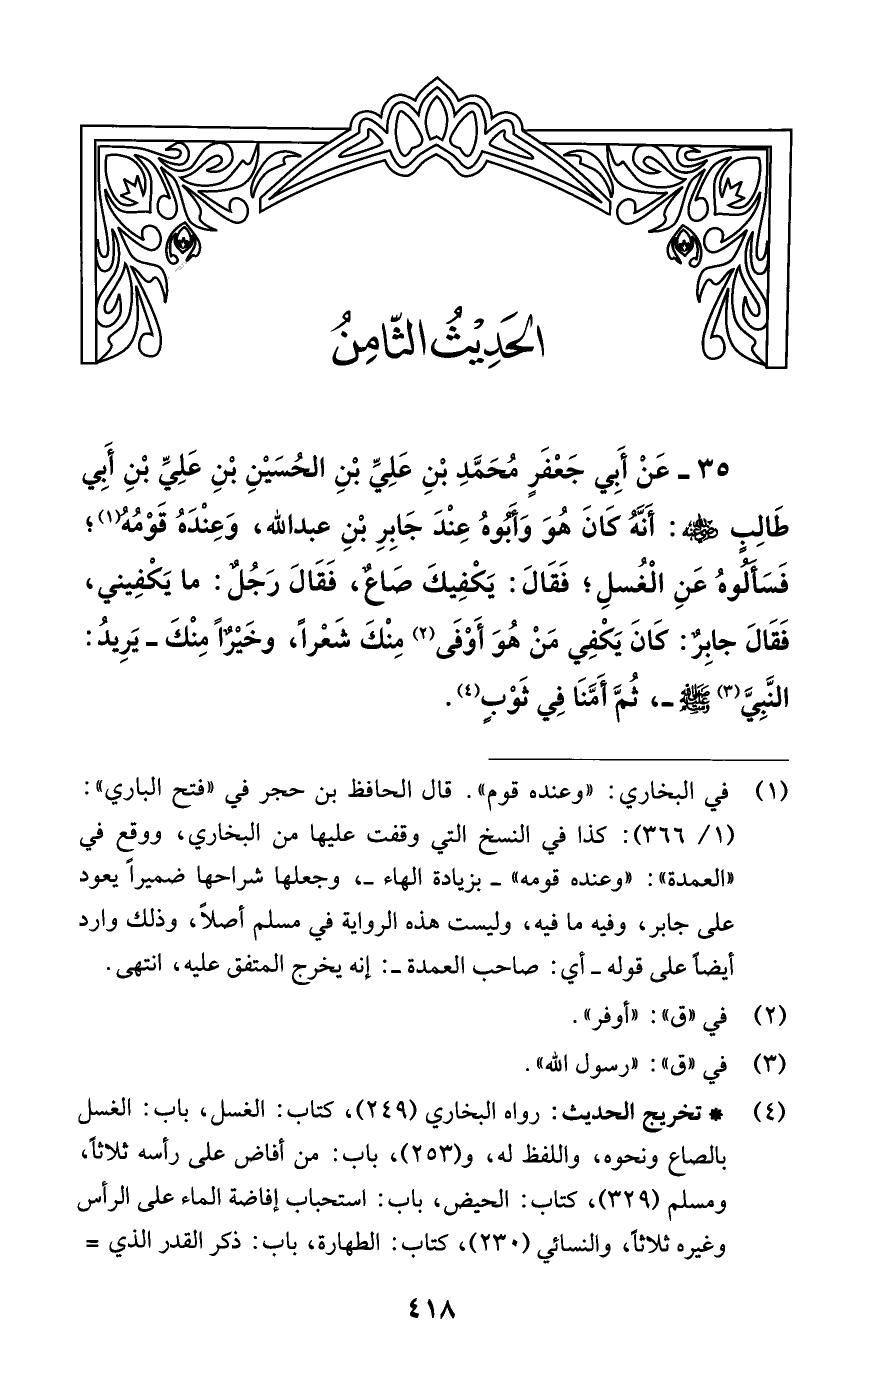 الحَدِيْثُ الثَّامِنُ
٣٥ ـ عَنْ أَبِي جَعْفَرٍ مُحَمَّدِ بْنِ عَلِيِّ بْنِ الحُسَيْنِ بْنِ عَلِيِّ بْنِ أَبِي
طَالِبٍ ﵁: أَنَّهُ كَانَ هُوَ وَأَبُوهُ عِنْدَ جَابِرِ بْنِ عبدالله، وَعِنْدَهُ قَوْمُهُ(١)؛
فَسَأَلُوهُ عَنِ الْغُسلِ؛ فَقَالَ: يَكْفِيكَ صَاعٌ، فَقَالَ رَجُلٌ: ما يَكْفِيني،
فَقَالَ جابِرٌ: كَانَ يَكْفِي مَنْ هُوَ أَوْفَى(٢) مِنْكَ شَعْراً، وخَيْرٌاً مِنْكَ ـ يَرِيدُ:
النَّبِيَّ(٣) ﷺ ـ، ثُمَّ أَمَّنَا فِي ثَوْبٍ(٤).
(١) في البخاري: «وعنده قوم». قال الحافظ بن حجر في «فتح الباري»:
(١/ ٣٦٦): كذا في النسخ التي وقفت عليها من البخاري، ووقع في
«العمدة»: «وعنده قومه» ـ بزيادة الهاء ـ، وجعلها شراحها ضميراً يعود
على جابر، وفيه ما فيه، وليست هذه الرواية في مسلم أصلاً، وذلك وارد
أيضاً على قوله ـ أي: صاحب العمدة ـ: إنه يخرج المتفق عليه، انتهى.
(٢) في «ق»: «أوفر».
(٣) في «ق»: «رسول الله».
(٤) * تخريج الحديث: رواه البخاري (٢٤٩)، كتاب: الغسل، باب: الغسل
بالصاع ونحوه، واللفظ له، و(٢٥٣)، باب: من أفاض على رأسه ثلاثاً،
ومسلم (٣٢٩)، كتاب: الحيض، باب: استحباب إفاضة الماء على الرأس
وغيره ثلاثاً، والنسائي (٢٣٠)، كتاب: الطهارة، باب: ذكر القدر الذي =
٤١٨